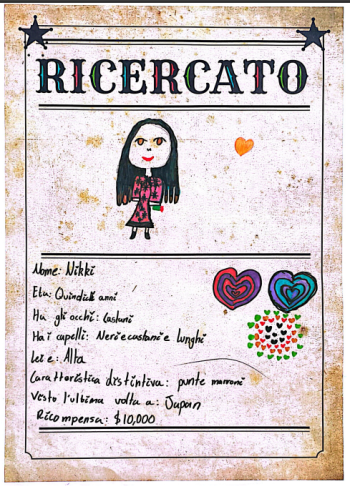 RICERCATO
Nome: Nikki
Età: Quindici anni
Ha gli occhi: Castani
Ha i capelli: Neri e castani e lunghi
Lei è: Alta
Caratteristica distintiva: punte marroni
Visto l'ultima volta a: Japan
Ricompensa: $10,000